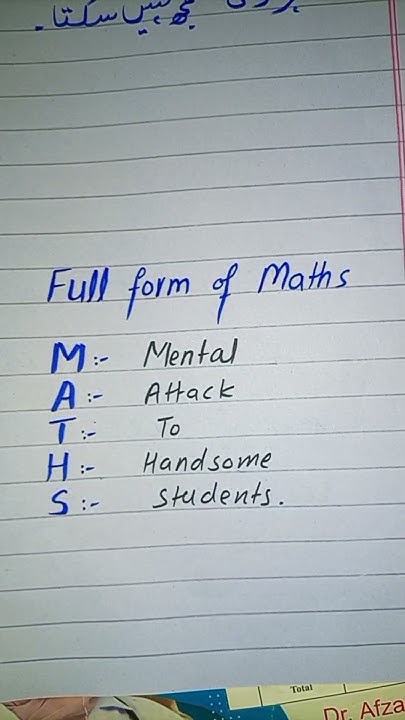 سکتا۔
Full form of Maths
M :- Mental
A :- Attack
T :- To
H :- Handsome
S :- students.
Total
Dr. Afza